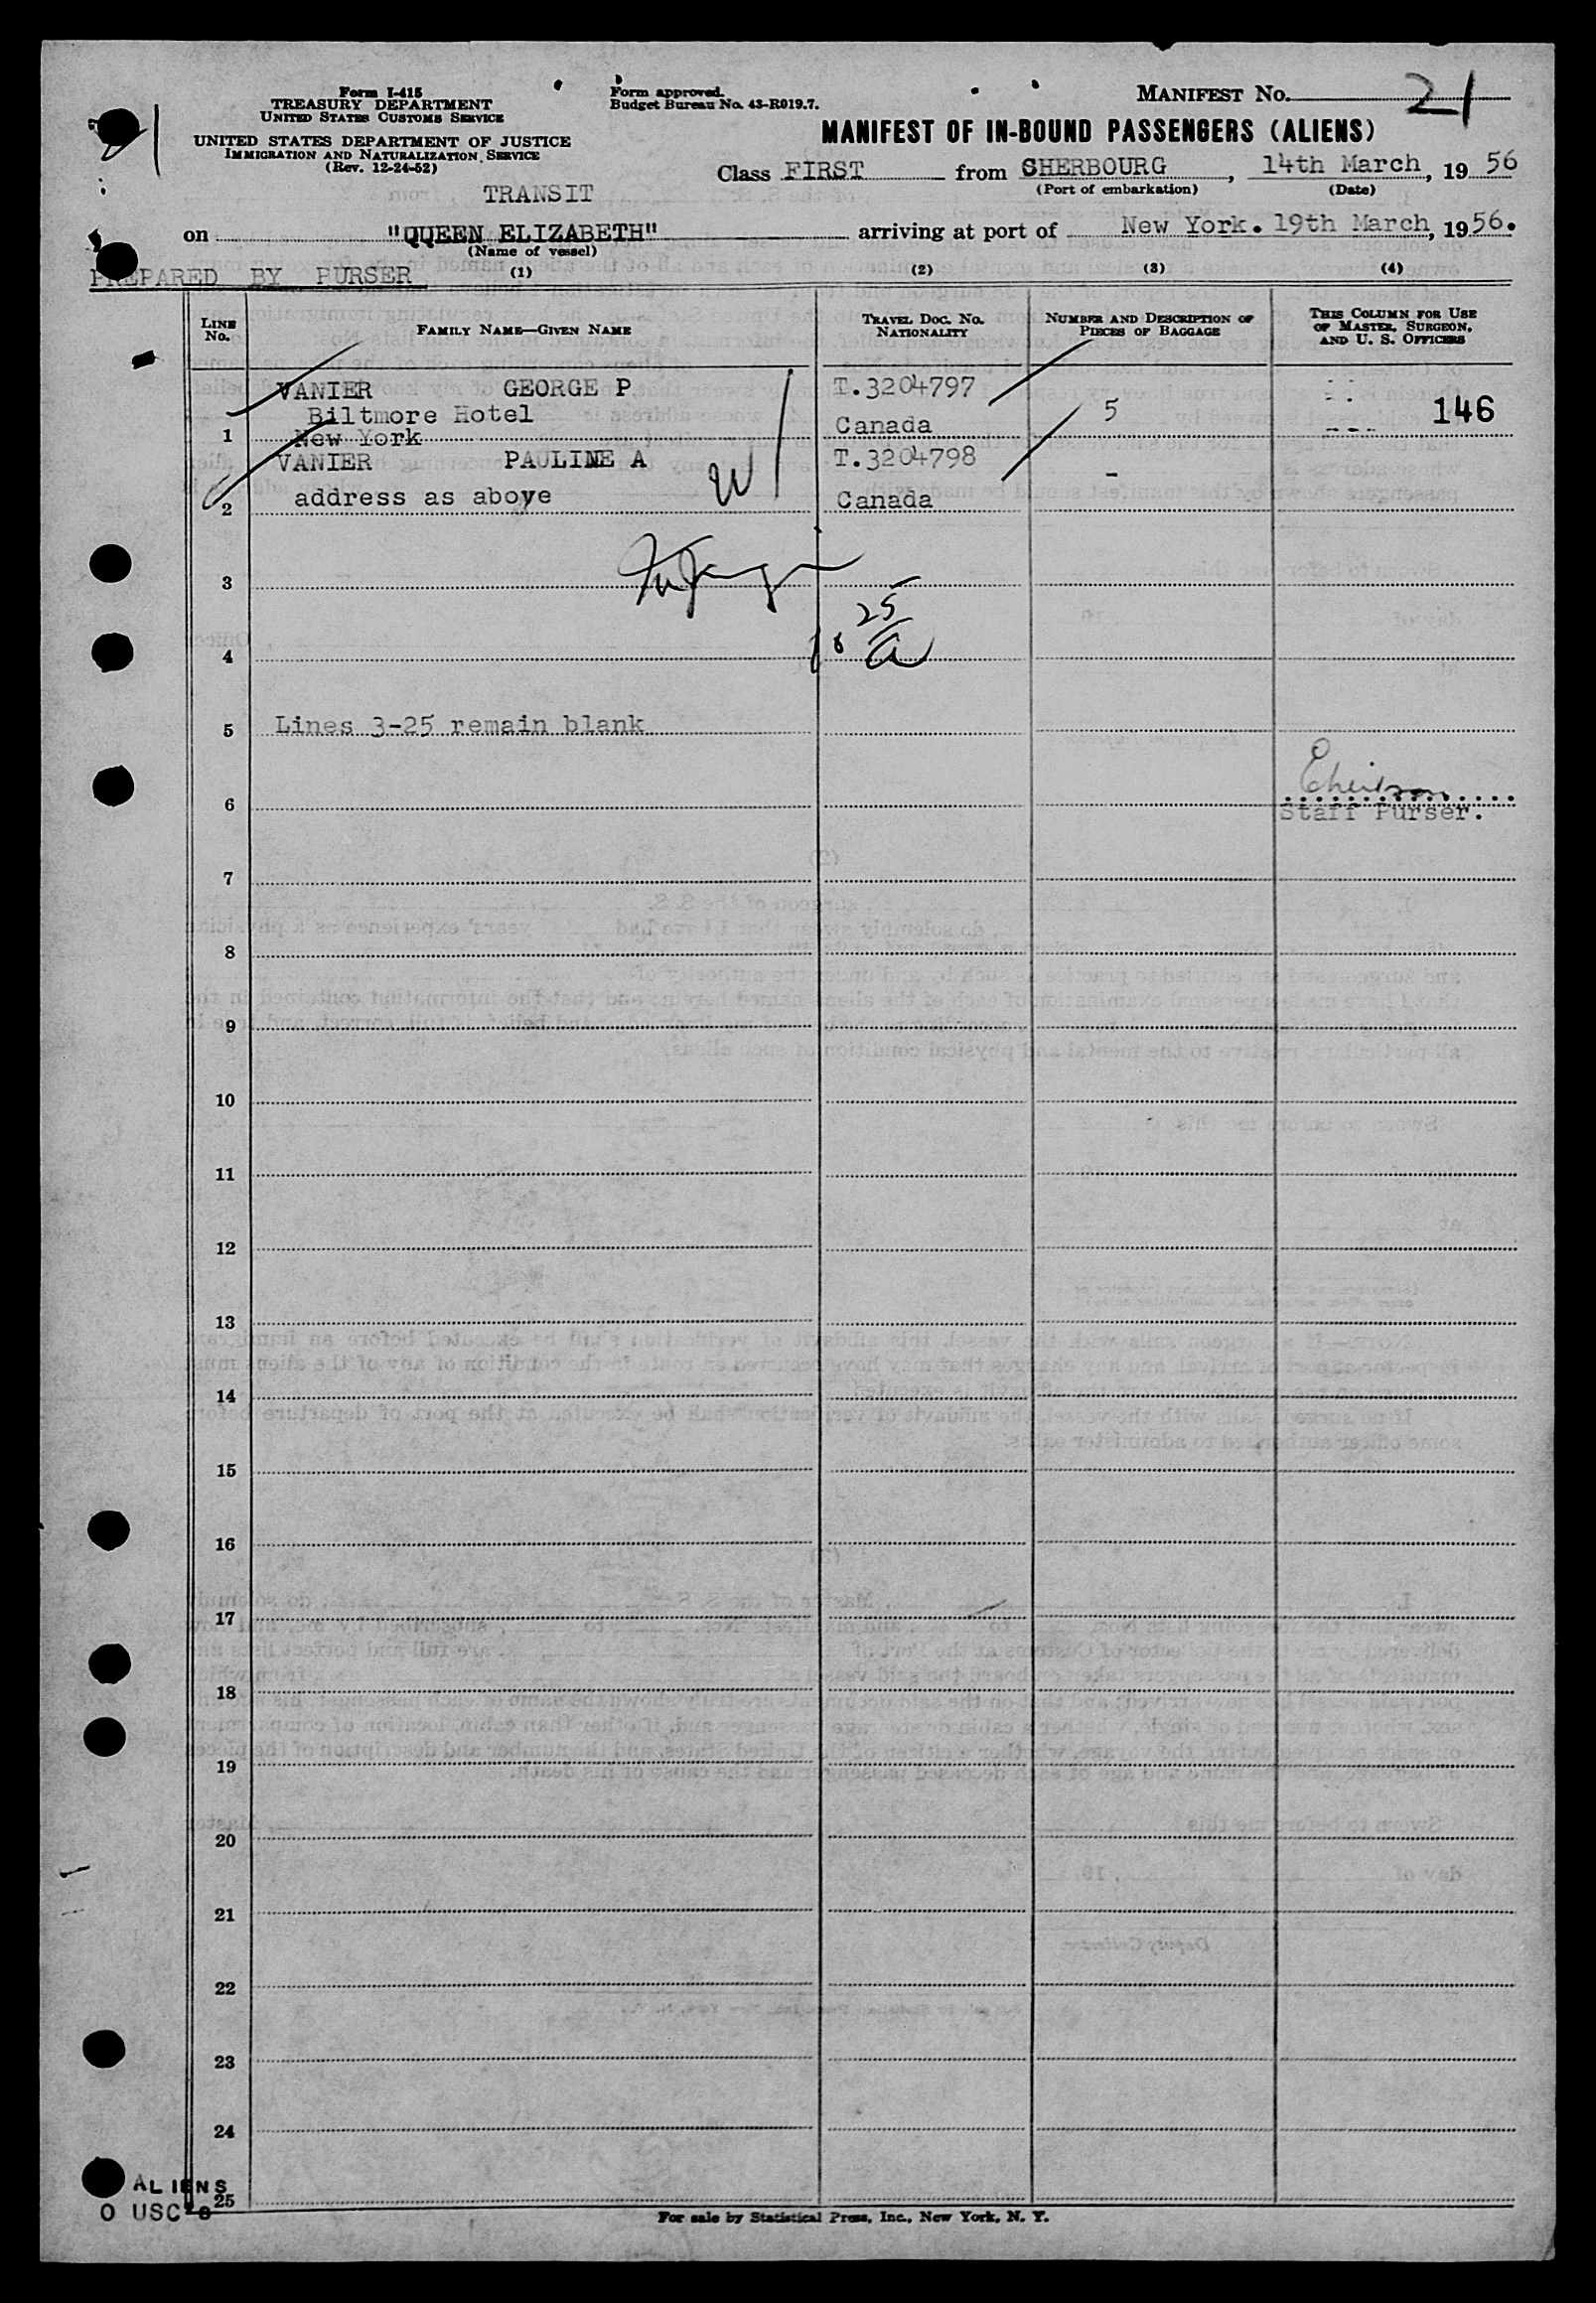 Form I-415
TREASURY DEPARTMENT
UNITED STATES CUSTOMS SERVICE
UNITED STATES DEPARTMENT OF JUSTICE
IMMIGRATION AND NATURALIZATION SERVICE
(Rev. 12-24-52)
Form approved.
Budget Bureau No. 43-R019.7.
MANIFEST No. 21
MANIFEST OF IN-BOUND PASSENGERS (ALIENS)
Class FIRST from CHERBOURG, 14th March, 1956
(Port of embarkation) (Date)
TRANSIT
on "QUEEN ELIZABETH" arriving at port of New York. 19th March, 1956.
(Name of vessel)
PREPARED BY PURSER (1) (2) (3) (4)
LINE No. FAMILY NAME—GIVEN NAME TRAVEL DOC. No. NATIONALITY NUMBER AND DESCRIPTION OF PIECES OF BAGGAGE THIS COLUMN FOR USE OF MASTER, SURGEON, AND U. S. OFFICERS
VANIER GEORGE P T.3204797
Biltmore Hotel 5 146
1 New York Canada
VANIER PAULINE A T.3204798 -
2 address as above Canada
3
25
4
5 Lines 3-25 remain blank
6 Staff Purser.
7
8
9
10
11
12
13
14
15
16
17
18
19
20
21
22
23
24
ALIENS
25
0 USC
For sale by Statistical Press, Inc., New York, N. Y.